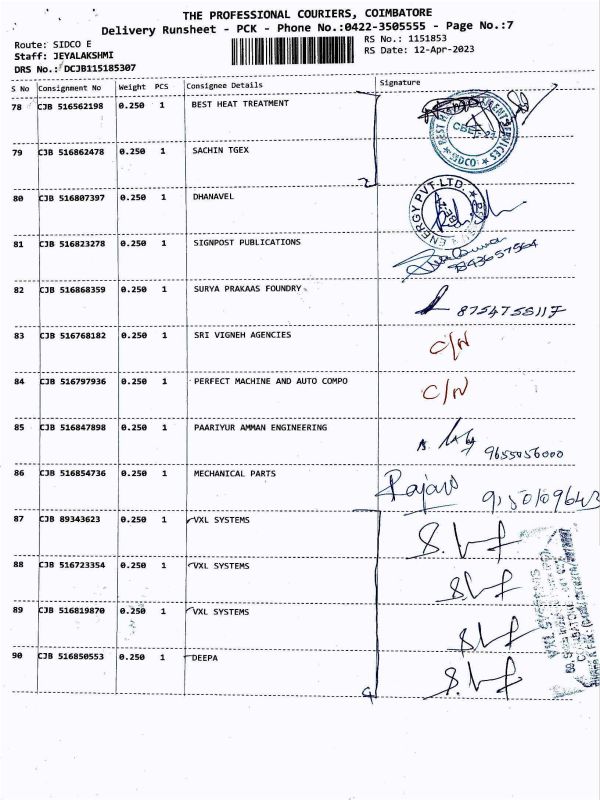 THE PROFESSIONAL COURIERS, COIMBATORE
Delivery Runsheet - PCK - Phone No.:0422-3505555 - Page No.:7
Route: SIDCO E
RS No.: 1151853
Staff: JEYALAKSHMI
RS Date: 12-Apr-2023
DRS No.: DCJB115185307
S No Consignment No Weight PCS Consignee Details Signature
78 CJB 516562198 0.250 1 BEST HEAT TREATMENT
79 CJB 516862478 0.250 1 SACHIN TGEX
SIDCO
80 CJB 516807397 0.250 1 DHANAVEL
ENERGY PVT.LTD.
81 CJB 516823278 0.250 1 SIGNPOST PUBLICATIONS
9843657564
82 CJB 516868359 0.250 1 SURYA PRAKAAS FOUNDRY
83 CJB 516768182 0.250 1 SRI VIGNEH AGENCIES C/N
84 CJB 516797936 0.250 1 PERFECT MACHINE AND AUTO COMPO C/N
85 CJB 516847898 0.250 1 PAARIYUR AMMAN ENGINEERING 9655056000
86 CJB 516854736 0.250 1 MECHANICAL PARTS
87 CJB 89343623 0.250 1 VXL SYSTEMS
88 CJB 516723354 0.250 1 VXL SYSTEMS
89 CJB 516819870 0.250 1 VXL SYSTEMS
90 CJB 516850553 0.250 1 DEEPA